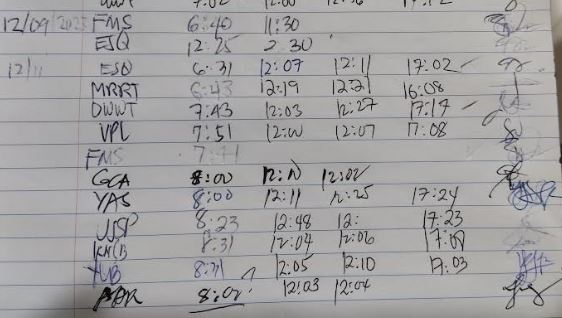 7:02 12:00 17:12
12/09/2023 FMS 6:40 11:30
ESQ 12:25 2:30
12/11 ESQ 6:31 12:07 12:11 17:02
MRRT 6:43 12:19 12:21 16:08
DWWT 7:43 12:03 12:27 17:14
VPL 7:51 12:00 12:07 17:08
FMS 7:41
GCA 8:00 12:10 12:02
YAS 8:00 12:11 12:25 17:24
8:23 12:48 12: 17:23
KNCB 8:31 12:04 12:06 17:09
8:31 12:05 12:10 17:03
8:02 12:03 12:04